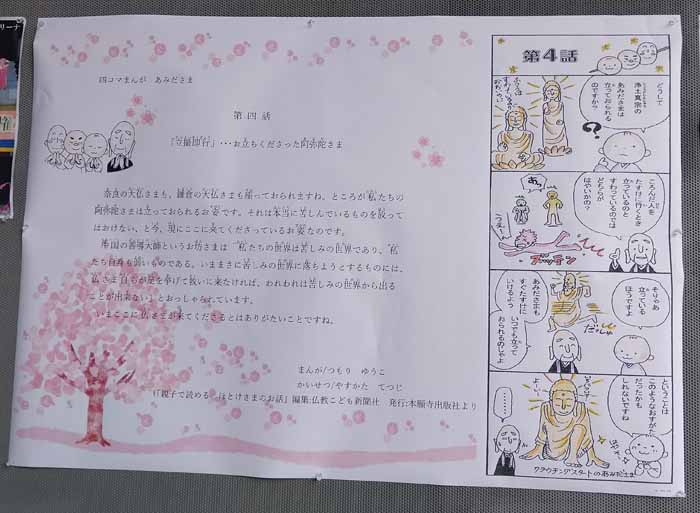 四コマまんが　あみださま
第四話
「立撮即行」・・・お立ちくださった阿弥陀さま
奈良の大仏さまも、鎌倉の大仏さまも座っておられますね。ところが私たちの
阿弥陀さまは立っておられるお姿です。それは本当に苦しんでいるものを放って
はおけない、と今、現にここに来てくださっているお姿なのです。
中国の善導大師というお坊さまは「私たちの世界は苦しみの世界であり、私
たち自身も弱いものである。いままさに苦しみの世界に落ちようとするものには、
仏さま自らが足を挙げて救いに来なければ、われわれは苦しみの世界から出る
ことが出来ない」とおっしゃられています。
いまここに仏さまが来てくださるとはありがたいことですね。
まんが/つもり　ゆうこ
かいせつ/やすかた　てつじ
(『親子で読める　ほとけさまのお話』編集:仏教こども新聞社　発行:本願寺出版社より
第４話
どうして
浄土真宗の
あみださまは
立っておられる
のですか？
ころんだ人を
たすけに行くとき
立っているのと
すわっているのでは
どちらが
はやいかの？
あっ
そりゃあ
立っている
ほうですよ
あみださまも
すぐたすけに
いけるよう
いつでも立って
おられるのじゃよ
だっしゅ
ということは
このようなおすがた
だったかも
しれないですね
………
クラウチングスタートのあみださま